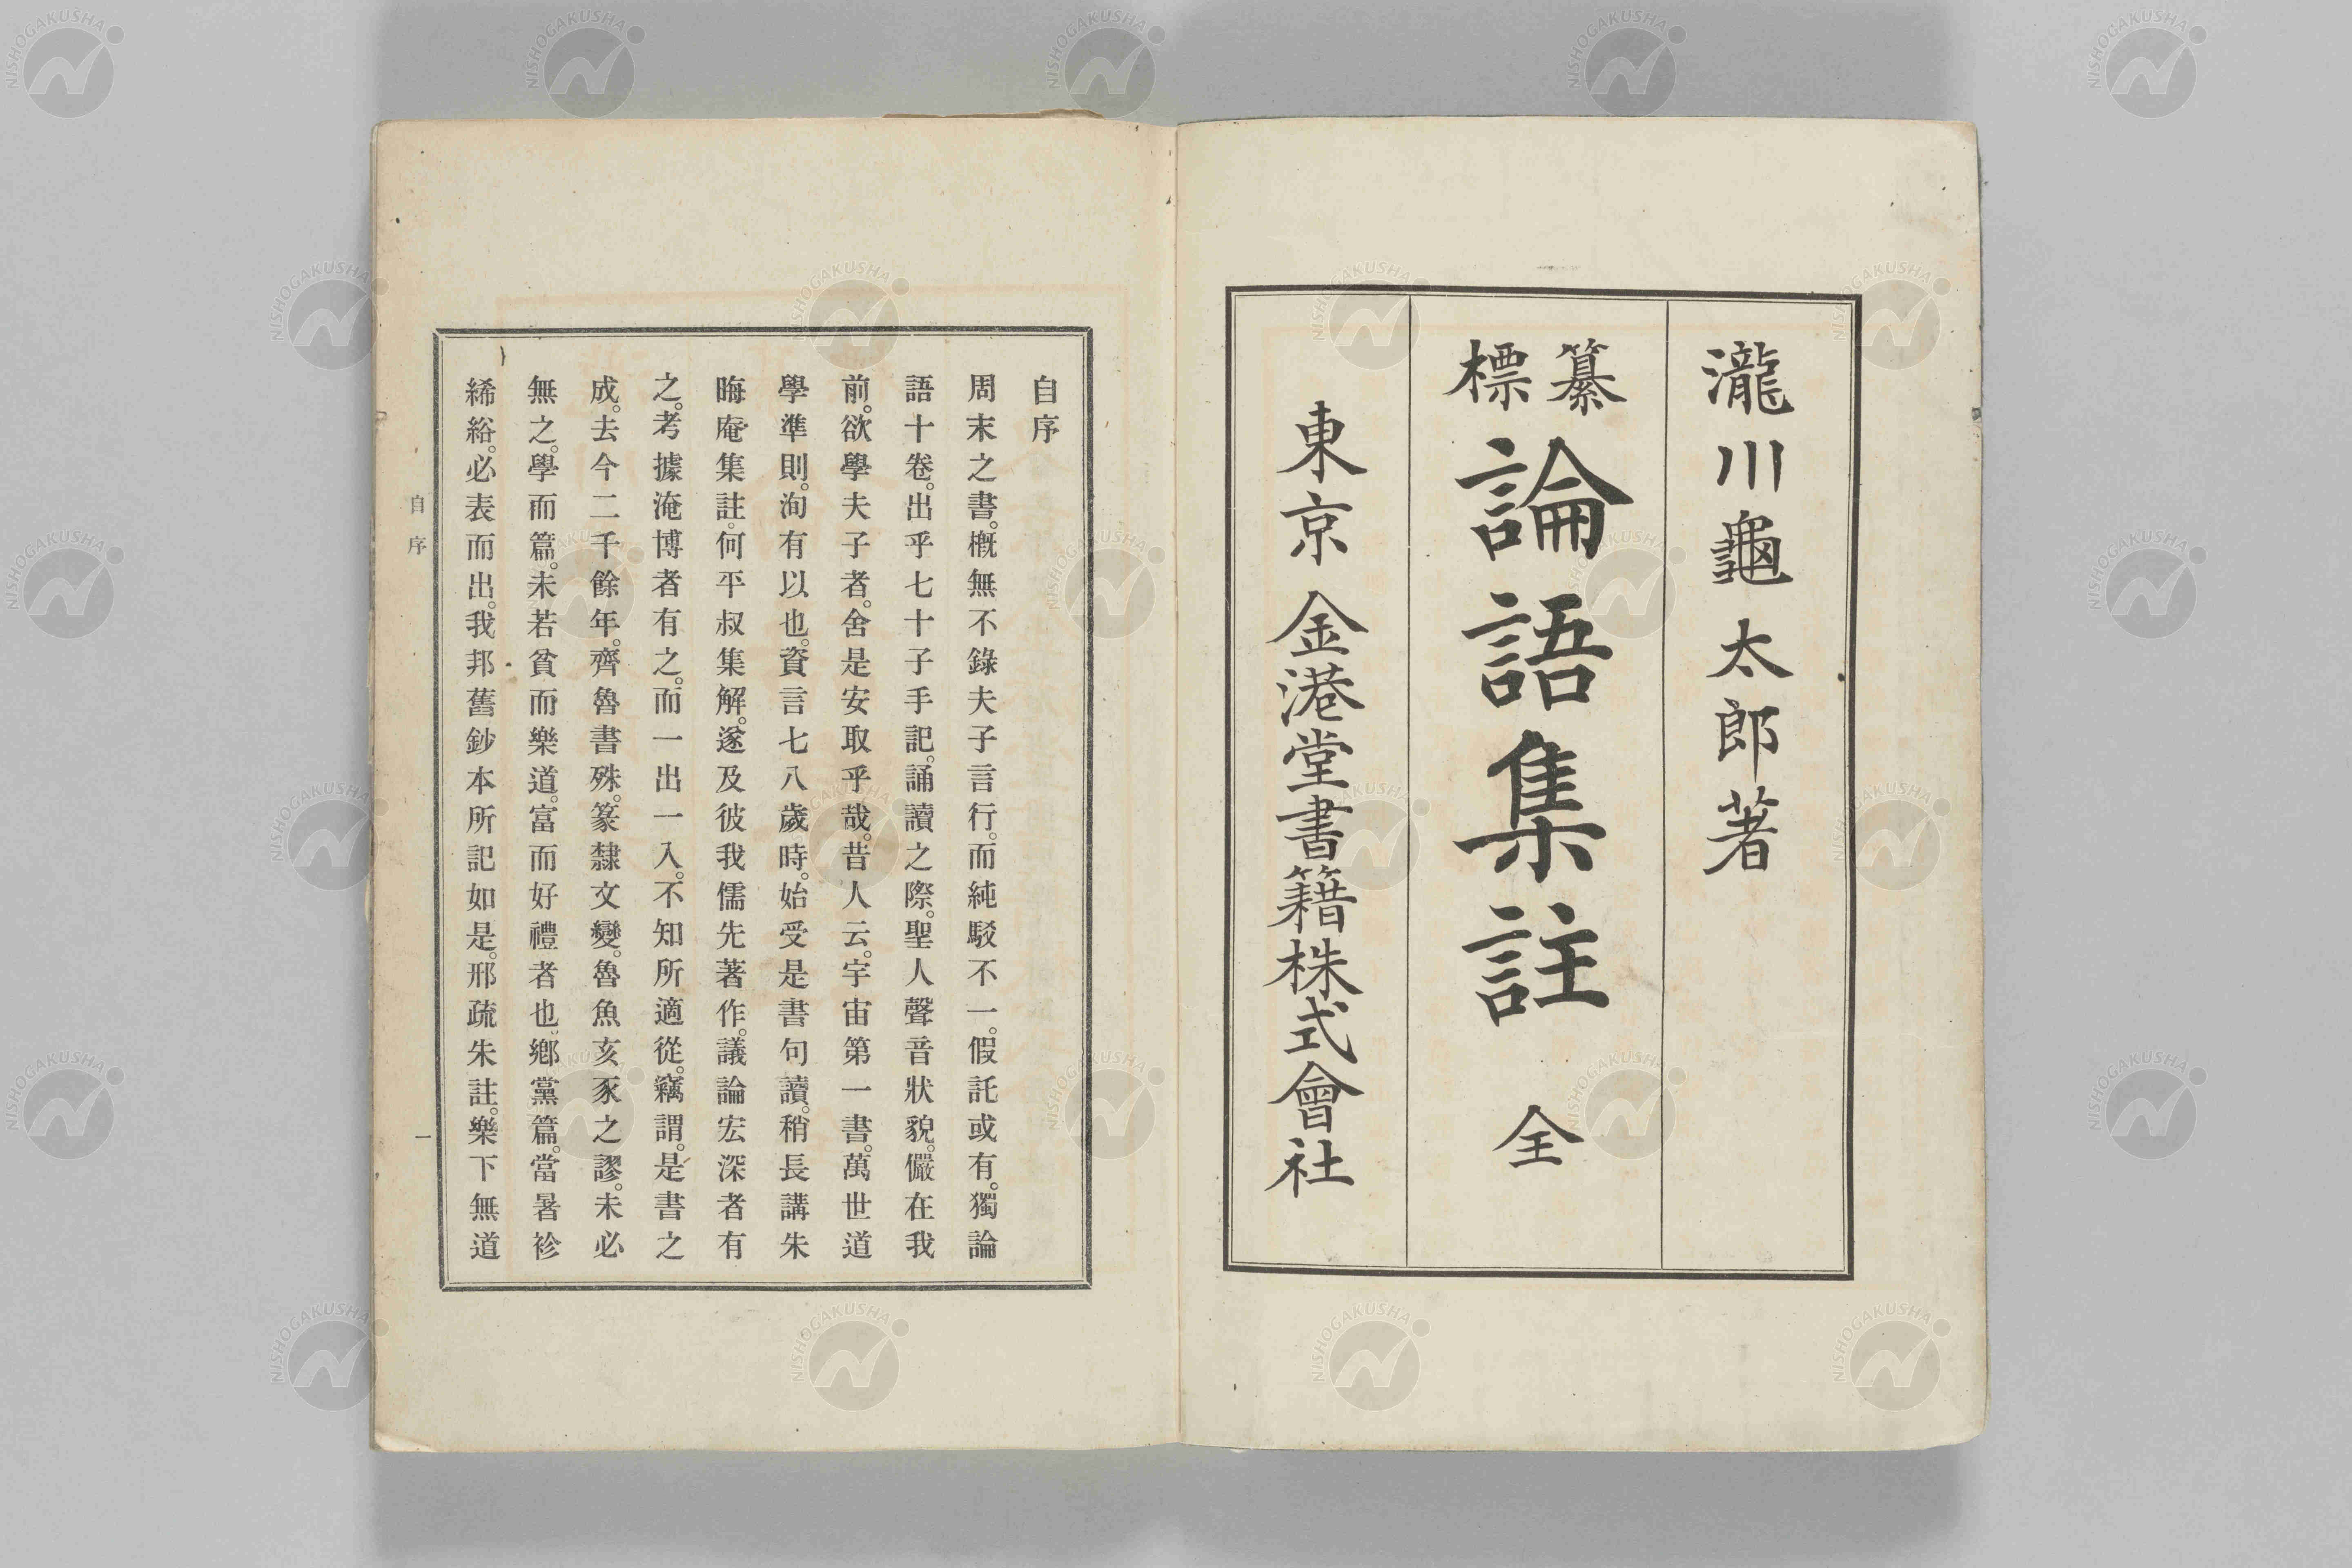 瀧川龜太郎著
纂標論語集註 全
東京 金港堂書籍株式會社
自序
周末之書。概無不錄夫子言行。而純駁不一。假託或有。獨論
語十卷。出乎七十子手記。誦讀之際。聖人聲音狀貌。儼在我
前。欲學夫子者。舍是安取乎哉。昔人云。宇宙第一書。萬世道
學準則。洵有以也。資言七八歲時。始受是書句讀。稍長講朱
晦庵集註。何平叔集解。遂及彼我儒先著作。議論宏深者有
之。考據淹博者有之。而一出一入。不知所適從。竊謂。是書之
成。去今二千餘年。齊魯書殊。篆隸文變。魯魚亥豕之謬。未必
無之。學而篇。未若貧而樂道。富而好禮者也。鄉黨篇。當暑袗
絺綌。必表而出。我邦舊鈔本所記如是。邢疏朱註。樂下無道
自序
一
NISHOGAKUSHA